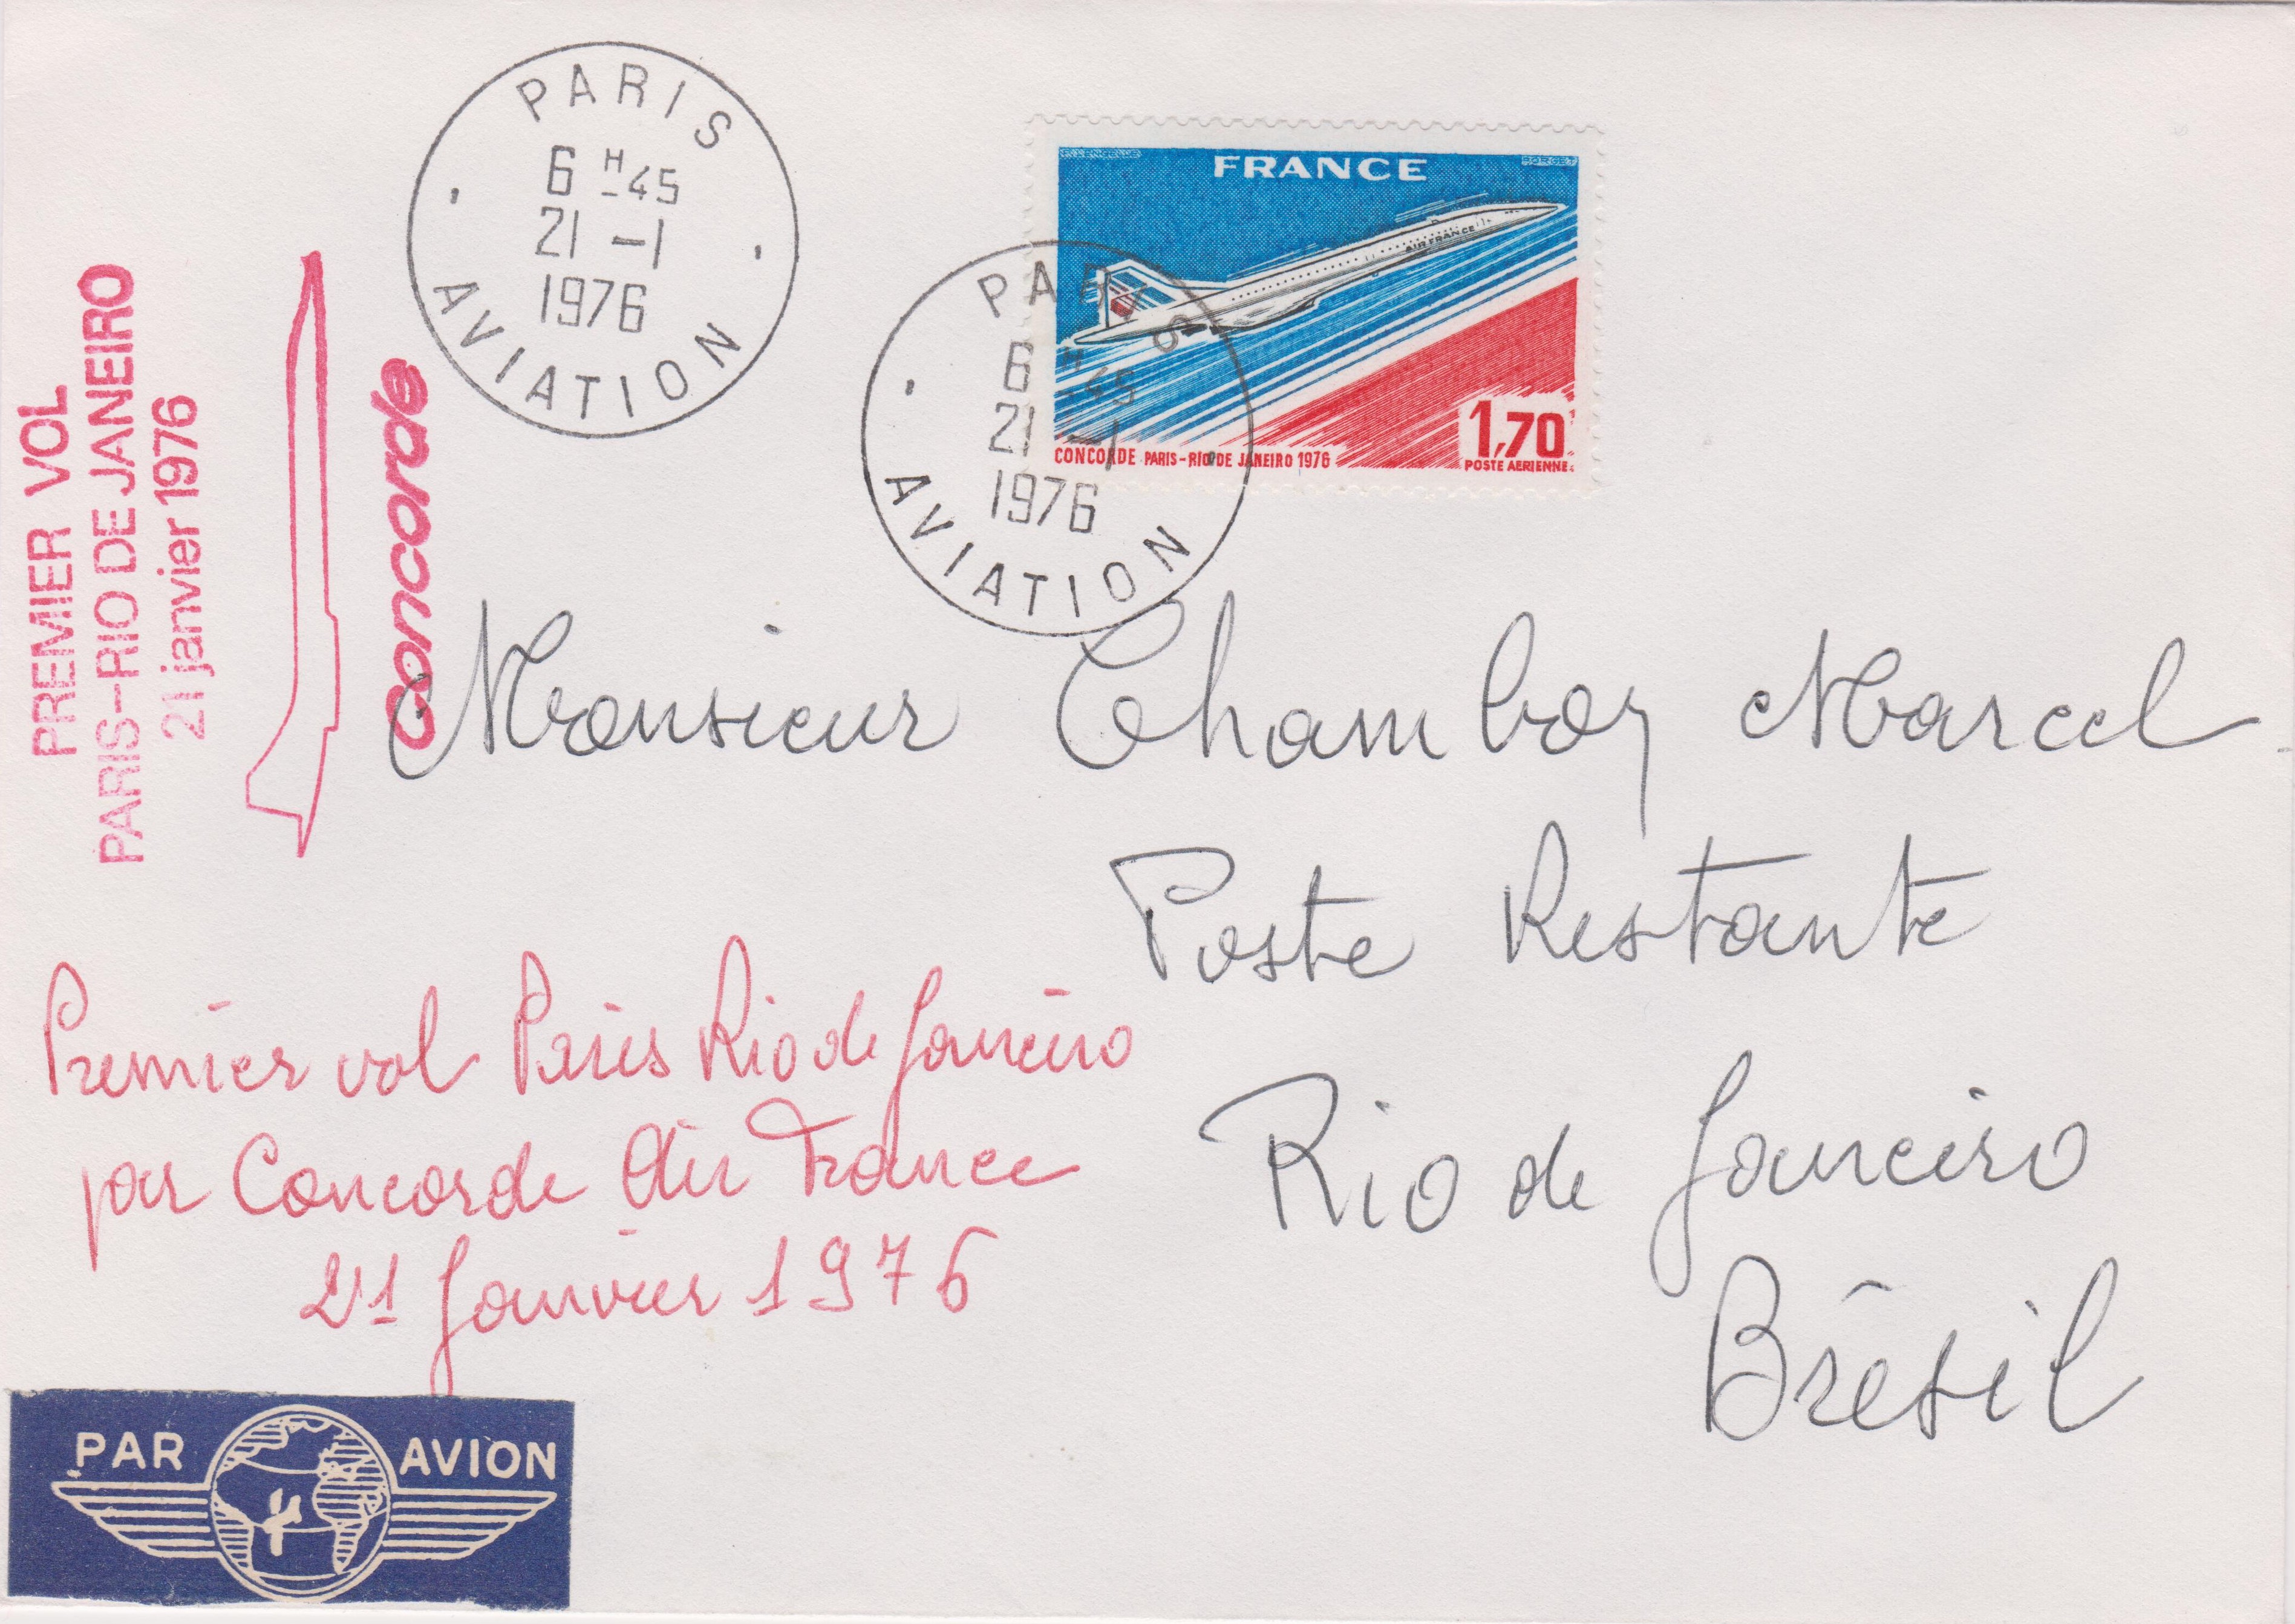 PARIS
6 H 45
21 - 1
1976
AVIATION
FRANCE
AIR FRANCE
1,70
POSTE AERIENNE
CONCORDE PARIS-RIO DE JANEIRO 1976
PARIS
6 H 45
21 - 1
1976
AVIATION
PREMIER VOL
PARIS-RIO DE JANEIRO
21 janvier 1976
concorde
Monsieur Chamboy Marcel
Poste Restante
Rio de Janeiro
Brésil
Premier vol Paris Rio de Janeiro
par Concorde Air France
21 Janvier 1976
PAR AVION